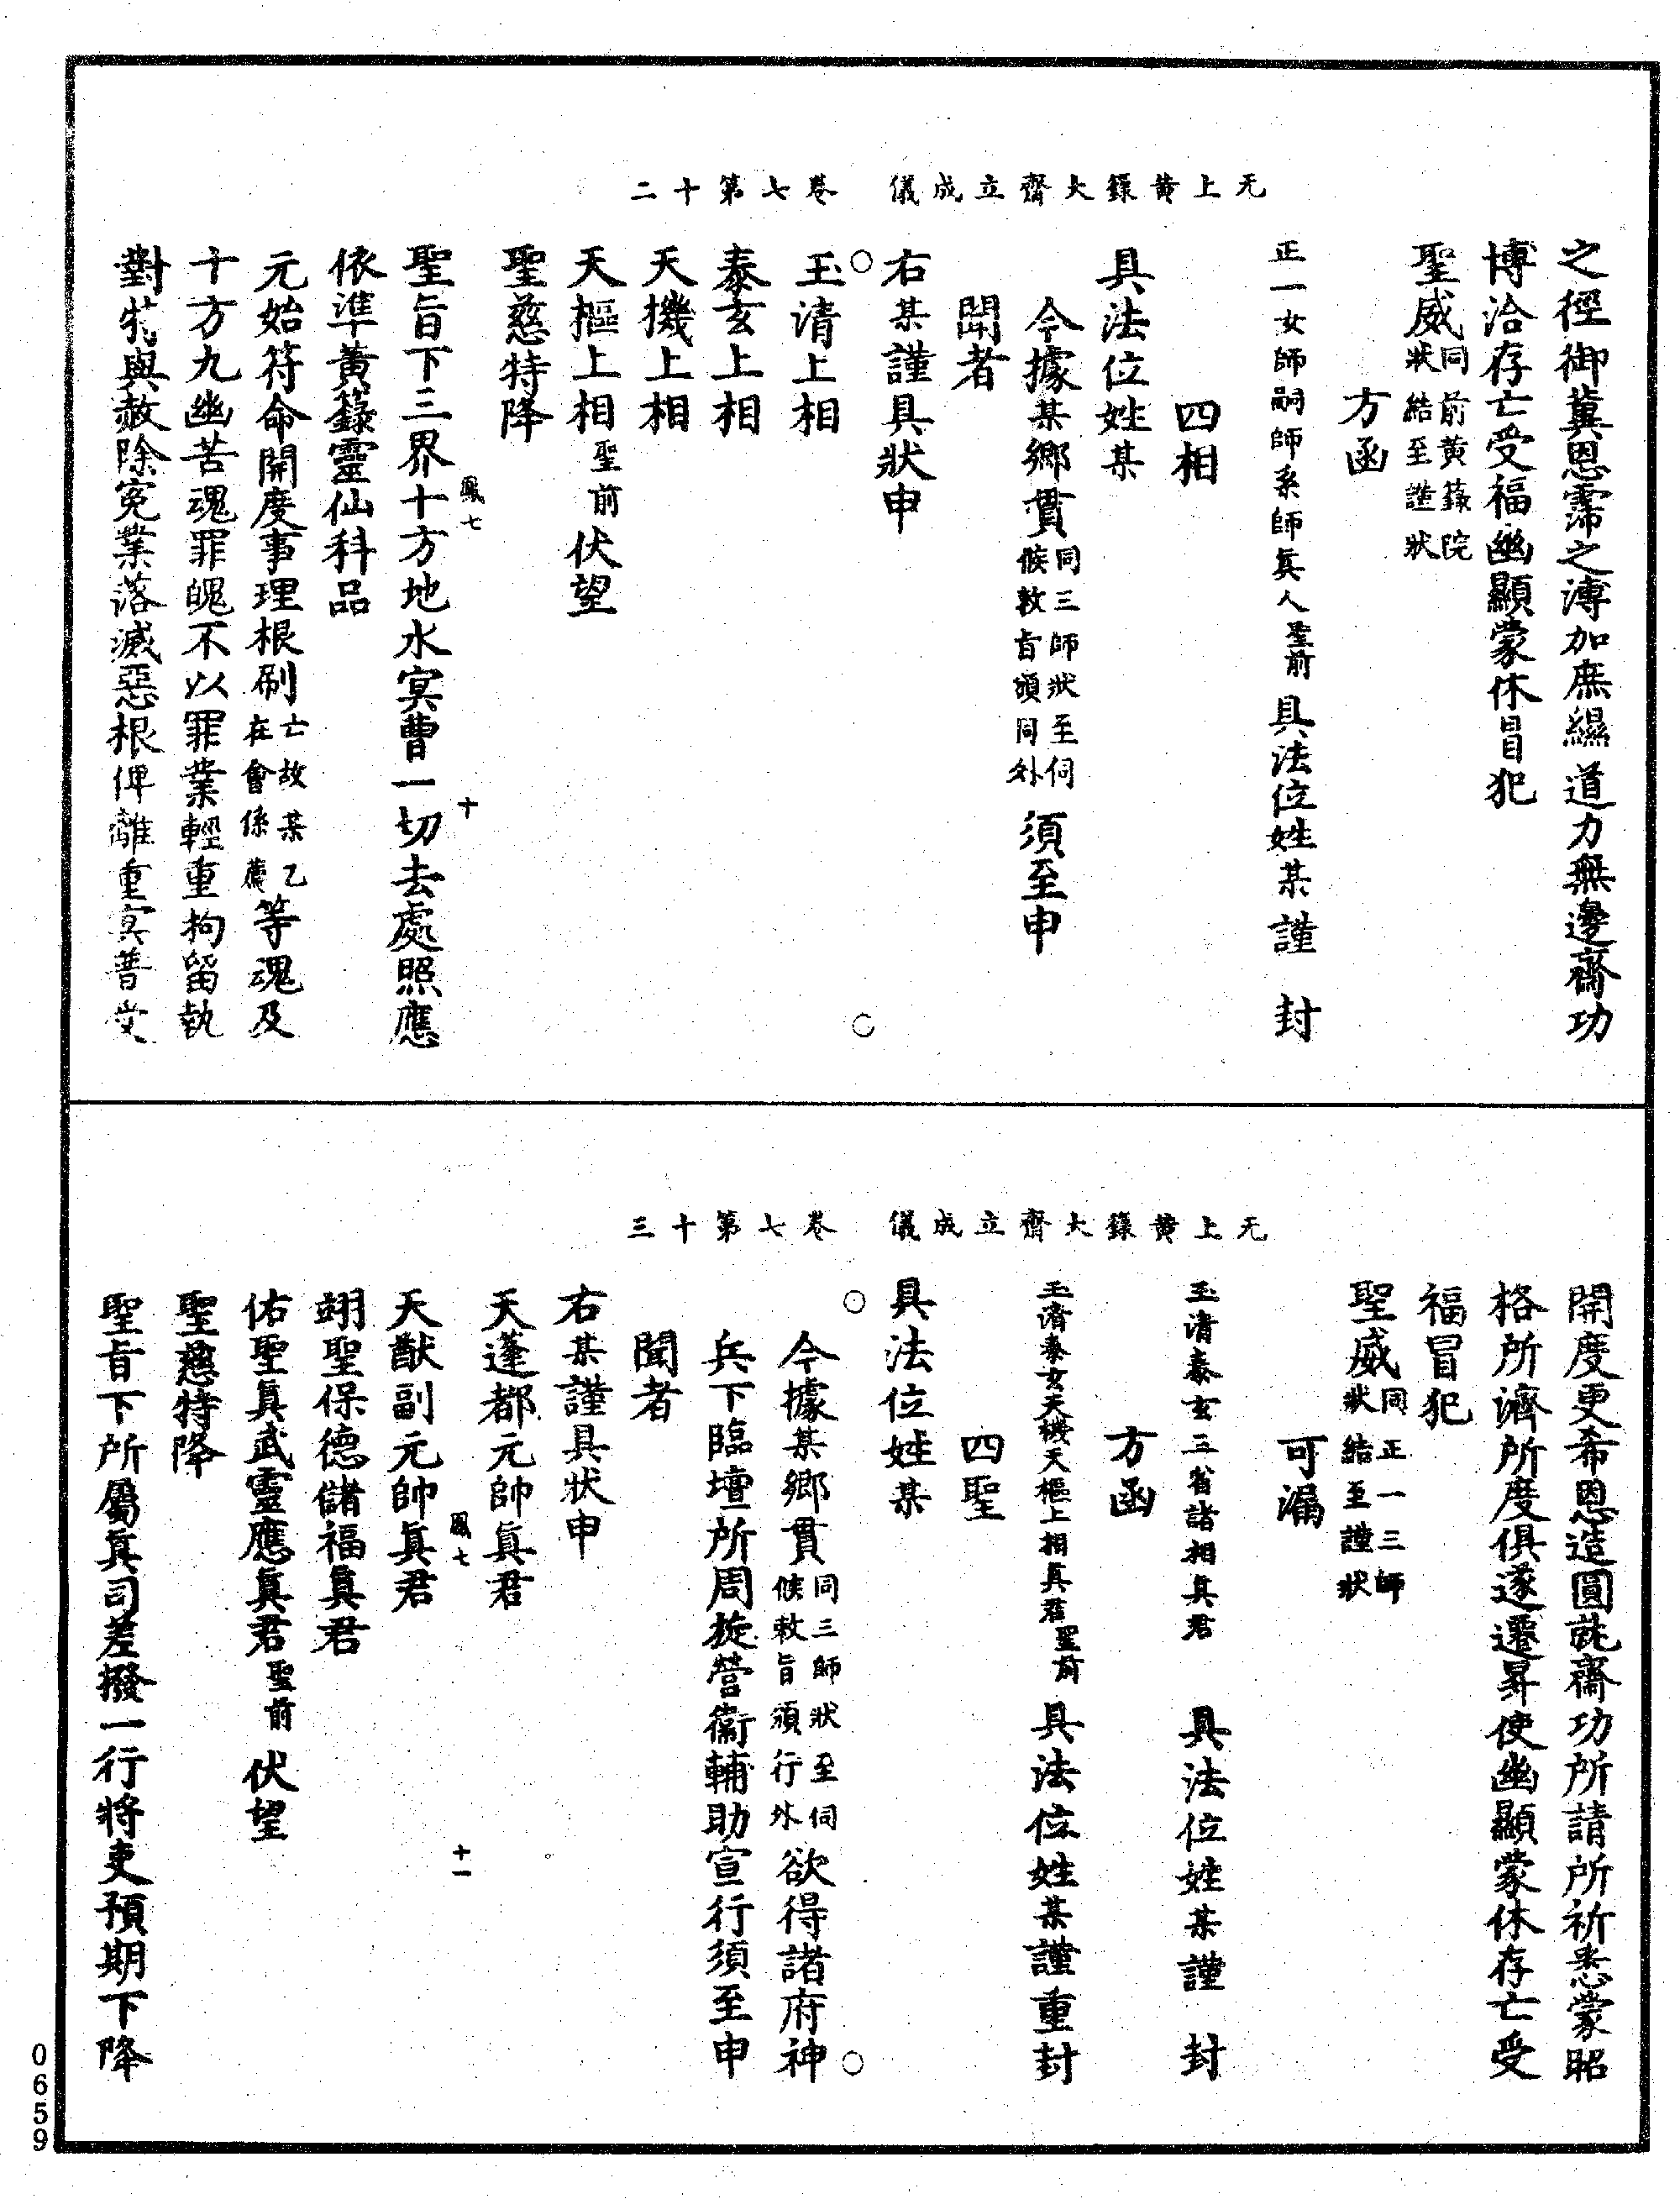 无上黃籙大齋立成儀　卷七第十二
之徑御冀恩霈之溥加庶緼道力無邊齋功
博洽存亡受福幽顯蒙休冒犯
聖威同前黃籙院狀結至謹狀
方函
正一女師嗣師系師眞人聖前具法位姓某謹　封
四相
具法位姓某
今據某鄉貫同三師狀至伺候敕旨頒同外須至申
聞者
右某謹具狀申
玉清上相
泰玄上相
天機上相
天樞上相聖前伏望
聖慈特降
鳳七　十
聖旨下三界十方地水冥曹一切去處照應
依準黃籙靈仙科品
元始符命開度事理根刷亡故某乙在會係薦等魂及
十方九幽苦魂罪魄不以罪業輕重拘留執
對並與赦除寃業落滅惡根俾離重冥普受
无上黃籙大齋立成儀　卷七第十三
開度更希恩造圓就齋功所請所祈悉蒙昭
格所濟所度俱遂遷昇使幽顯蒙休存亡受
福冒犯
聖威同正一三師狀結至謹狀
可漏
玉清泰玄三省諸相眞君　具法位姓某謹　封
方函
玉清泰玄天機天樞上相眞君聖前具法位姓某謹重封
四聖
具法位姓某
今據某鄉貫同三師狀至伺候敕旨頒行外欲得諸府神
兵下臨壇所周旋營衞輔助宣行須至申
聞者
右某謹具狀申
天蓬都元帥眞君
鳳七　十一
天猷副元帥眞君
翊聖保德儲福眞君
佑聖眞武靈應眞君聖前伏望
聖慈特降
聖旨下所屬眞司差撥一行將吏預期下降
0659